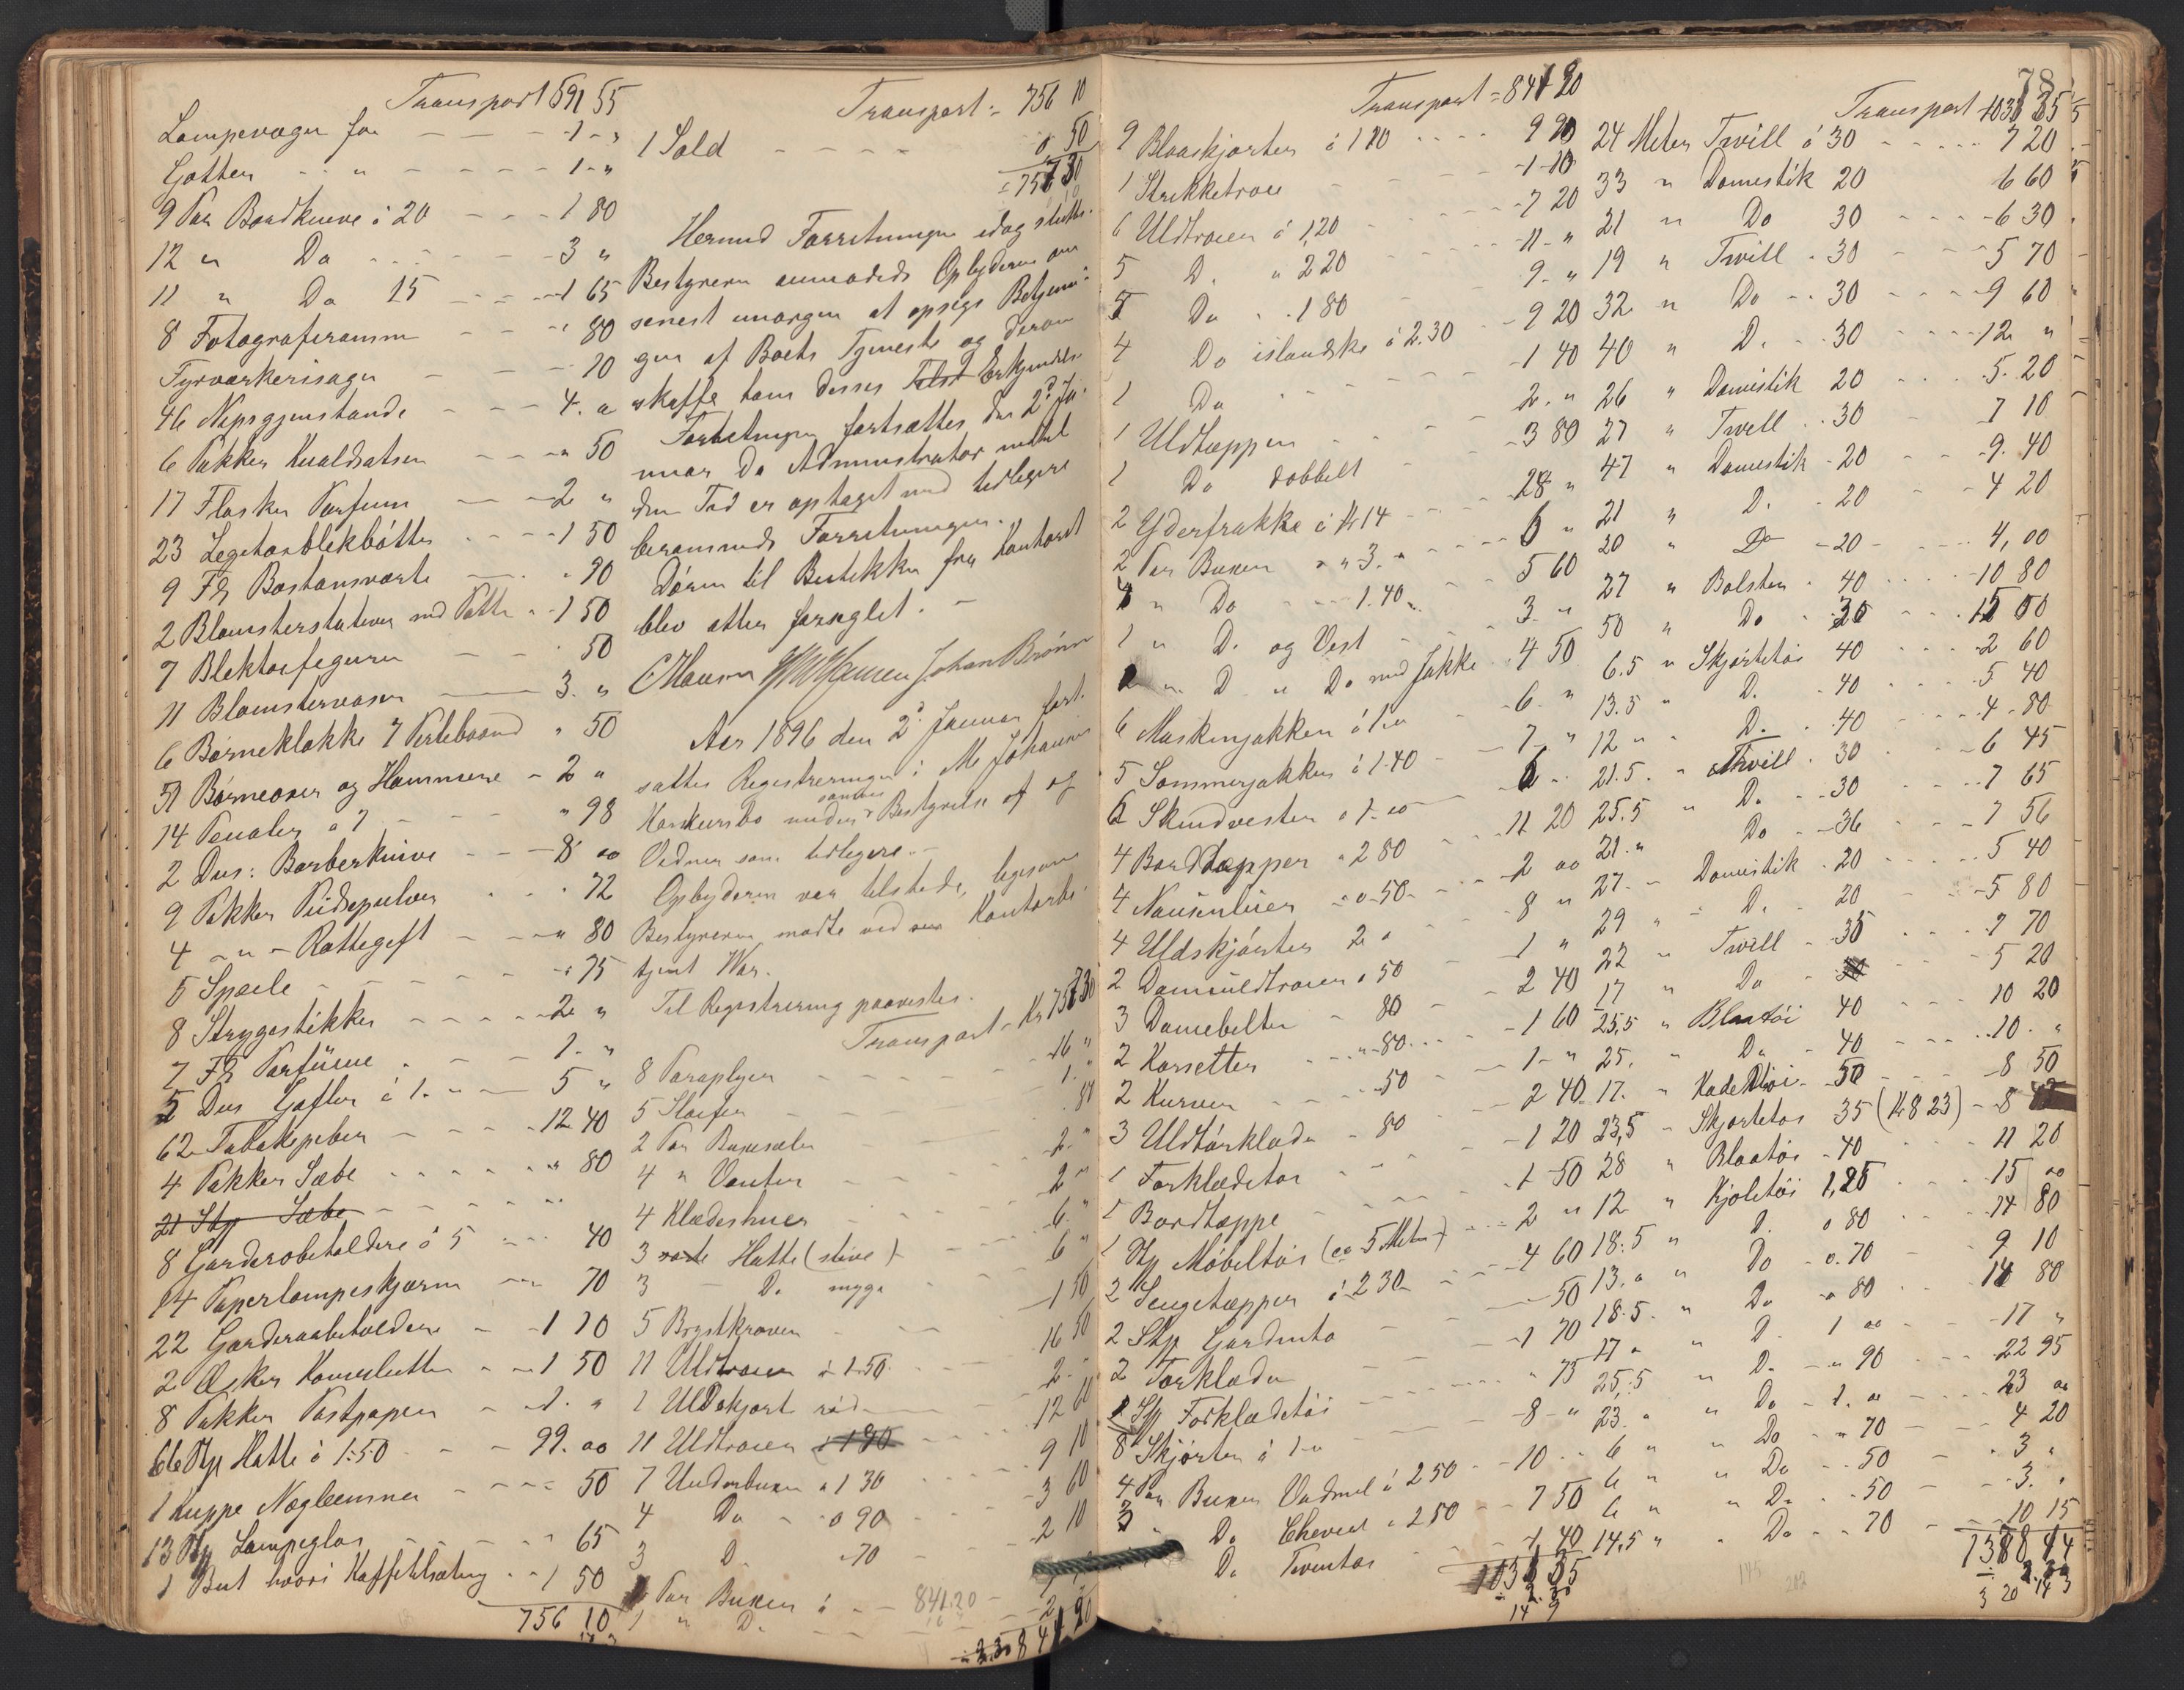 Transport 591 55
Lampevæger for - - - 1 - "
Gotter - - " - - - - 1 - "
9 Par Bordknive à 20 - - - 1 80
12 " Do - - - - - 3 "
11 " Do 15 - - - 1 65
8 Fotograferamm - - - " 80
Fyrværkerisager - - - 20
46 Nipsgjenstande - - - 4. "
6 Pakker - - - " 50
17 Flasker Parfum - - 2 "
23 Legetøiblikbøtter - - - 1 50
9 Fl Bostonsværte - - - " 90
2 Blomsterstativer med Potte - 1 50
7 Bliktøifigurer - - - 50
11 Blomstervaser - - 3. "
6 Børneklokke 7 " 50
Børneøxer og Hammere - 2 "
14 Penaler à 7 - - - " 98
2 Dus: Barberknive - - - 8 00
9 Pakker Pudsepulver - - - 72
4 - " - Rottegift - - - " 80
5 Speile - - - - 75
8 Strygestikker - - - - 2 "
7 Fl Parfüme - - - 1. "
5 Dus Gafler à 1. " - 5 "
62 Tobakspiber - - - 12 40
4 Pakker Sæbe - - - - " 80
21 Stp Sæbe - - - -
8 Garderobeholdere à 5 - - - 40
14 Papirlampeskjærm - - 70
22 Garderobeholdere - - 1 10
2 Æsker - - 1 50
8 Pakker Postpapir - - 1. "
66 Stp Hatte à 1.50 - - - 99. 00
1 Kuppe - - - 50
13 Stp Lampeglas - - - 65
1 Brt hvori Kaffetilsætning - - 1 50
756 10
Transport = 756 10
1 Sold - - - - - 0, 50
Hermed Forretningen idag sluttet.
Bestyreren anmodede Opbyderen om
senest imorgen at opsige Betjenin-
gen af Boets Tjeneste og derom
skaffe ham desses Erkjendelse
Forretningen fortsættes den 2d Ja-
nuar Da Administrator imidlertid
den Tid er optaget med tidligere
berammede Forretninger.
Døren til Butikken fra Kontoret
blev atter forseglet. -
C Hansen Johan Brønn
Aar 1896 den 2d Januar fort-
sattes Registreringen i M. Johannes
Konkursbo under samme Bestyrelse af og
Vidner som tidligere. -
Opbyderen var tilstede, ligesom
Bestyreren mødte ved Kontorbe-
tjent War.
Til Registrering paavistes.
Transport = Kr
8 Paraplyer - - - - 16 "
5 Sløifer - - - - 1. "
2 Par Buxeseler - - - 80
4 " Vanter - - - 2. "
4 Klædeshuer - - - 2 "
3 Hatte (stive) - - - 6. "
3 - Do myge - - - 6 "
5 Brystkraver - - 1 50
11 Uldtrøier à 1.50 - - 16 50
1 Uldskjorte rød - - 2. -
11 Uldtrøier à 1 90 - - - 12 60
7 Underbuxer à 1 30 - - - 9 10
4 Do - - à 90 - - 3 60
3 Do - 70 - - - 2 10
Par Buxer à - - 841.20
1 " D. - - -
Transport = 841 20
9 Blaaskjorter à 1 10 - - - 9 90
1 Strikketrøie - - - 1 10
6 Uldtrøier à 1,20 - - - 7 20
5 D. " 2,20 - - - 11 - "
5 Do - - 1 80 - - 9. "
4 Do islandske à 2.30 - - 9 20
1 Do - - - 1 40
1 Uldtæppe - - - 2. "
1 Do dobbelt - - - 3 80
2 Yderfrakke à Kr 14 - - - 28 "
2 Par Buxer " à 3. " - - - 6 "
4 " Do - - - 1.40 " - - 5 60
1 " D. og Vest - - - 3 "
" D " Do med Jakke - 4 50
6 Maskinjakker à 1. " - - 6. "
5 Sommerjakker à 1.40 - - 7 "
6 Skindvester à 1. 00 - - 6 "
4 Bordtæpper à 2 80 - - - 11 20
4 - à - 50 - - - 2 00
4 Uldskjorter 2 " - - - 8 "
2 Dameuldtrøier à 50 - - 1 "
3 Damebelter - 80 - - 2 40
2 Korsetter - - - 80 - - - 1 60
2 Kurver - - - 50 - - - 1 - "
3 Uldtørklæder - 80 - - - 2 40
1 Forklædetøi - - - - 1 20
1 Bordtæppe - - - 1 50
1 Stp Møbeltøi (ca 5 Meter) - - - 2 "
2 Sengetæpper à 2 30 - - - 4 60
2 Stp Gardintøi - - - 50
2 Forklæder - - - 1 70
Stp Forklædetøi - - - 75
8 Skjorter à 1 - " - - - 8 - "
4 Par Buxer Vadmel à 2 50 - - 10 -
3 " Do Cheviot à 2 50 - - 7 50
Do - - 1 40
78
Transport 35
24 Meter Twill à 30 - - - - 7 20
33 " Domestik 20 6 60
21 " Do 30 - - - 6 30
19 " Twill - 30 - - - 5 70
32 " Do - - 30 - - - 9 60
40 " D. - 30 - - - 12 "
26 " Domistik 20 - - - 5. 20
27 " Twill - 30 - - 7 10
47 " Domestik - 20 - - 9. 40
21 " D. - 20 - - 4 20
20 " Do - 20 - - - 4, 00
27 " Bolster - 40 - - - 10 80
50 " Do - 30 - - - 15 00
6.5 " Skjørtetøi 40 - - - 2 60
13.5 " D. - 40 - - - 5 40
12 " " D. - 40 - - - 4. 80
21.5 - " Twill - 30 - - - 6 45
25.5 " D. - 30 - - - 7 65
21. " Do - 36 - - - 7 56
27. - Domistik - 20 - - - 5 40
29 " - D. - 20 - - - 5 80
22 - Twill - 35 - - - 7 70
17 " Do - - - 5 20
25,5 " Blaatøi 40 - - - 10 20
25. " Do - 40 - - - 10. "
17. " - 50 - - - 8 50
23,5 - Skjortetøi 35 (Kr 8 23) - 8
28 " Blaatøi - 40 - - 11 20
12 " Kjoletøi 1,25 - - - 15 00
18.5 " D. à 80 - - - 14 80
13. " " Do à. 70 - - 9 10
18.5. " Do à 80 - - 14 80
17 " " D. 1 00 - - - 17 "
25,5 " D. - " 90 - - - 22 95
23. " " Do - 1. " - - - 23 00
6 " " Do - " 70 - - 4 20
6 " " Do - - 50 - - - 3 "
6 " " D. - - 50 - - - 3. "
14,5 " " Do - - 70 - - - 10 15